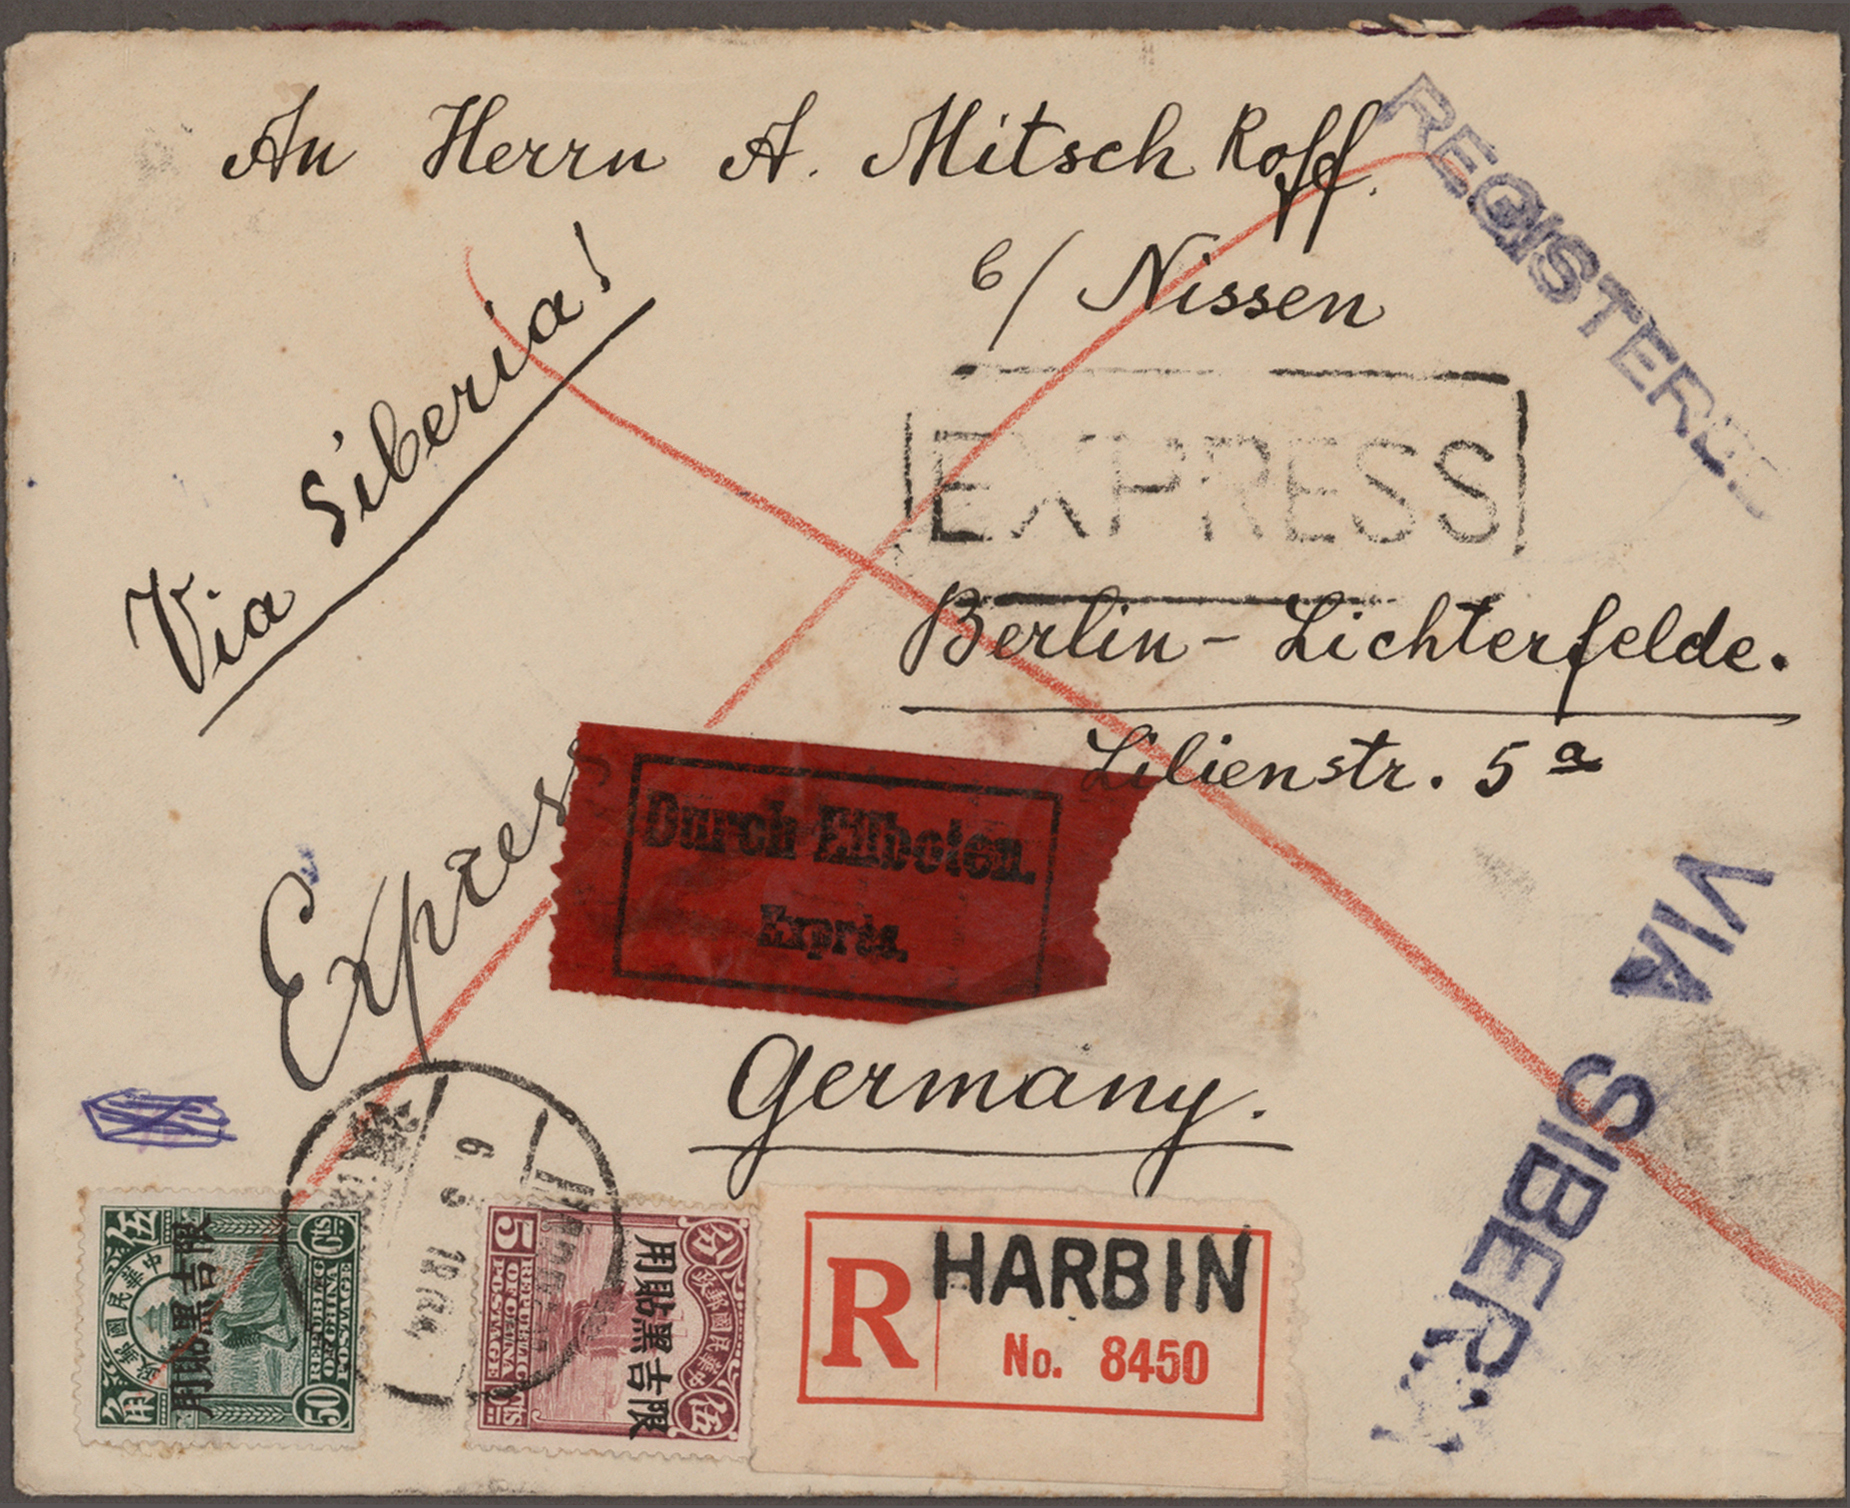 An Herrn A. Mitsch Roff.
c/ Nissen
REGISTERED
Via Siberia!
EXPRESS
Berlin - Lichterfelde.
Lilienstr. 5 a
Express
Durch Eilboten.
Exprès.
VIA SIBERIA
Germany.
伍角
中華民國郵政
限吉黑貼用
50 CTS
REPUBLIC
OF CHINA
POSTAGE
5
REPUBLIC
OF CHINA
POSTAGE
中華民國郵政
伍分
限吉黑貼用
R HARBIN
No. 8450